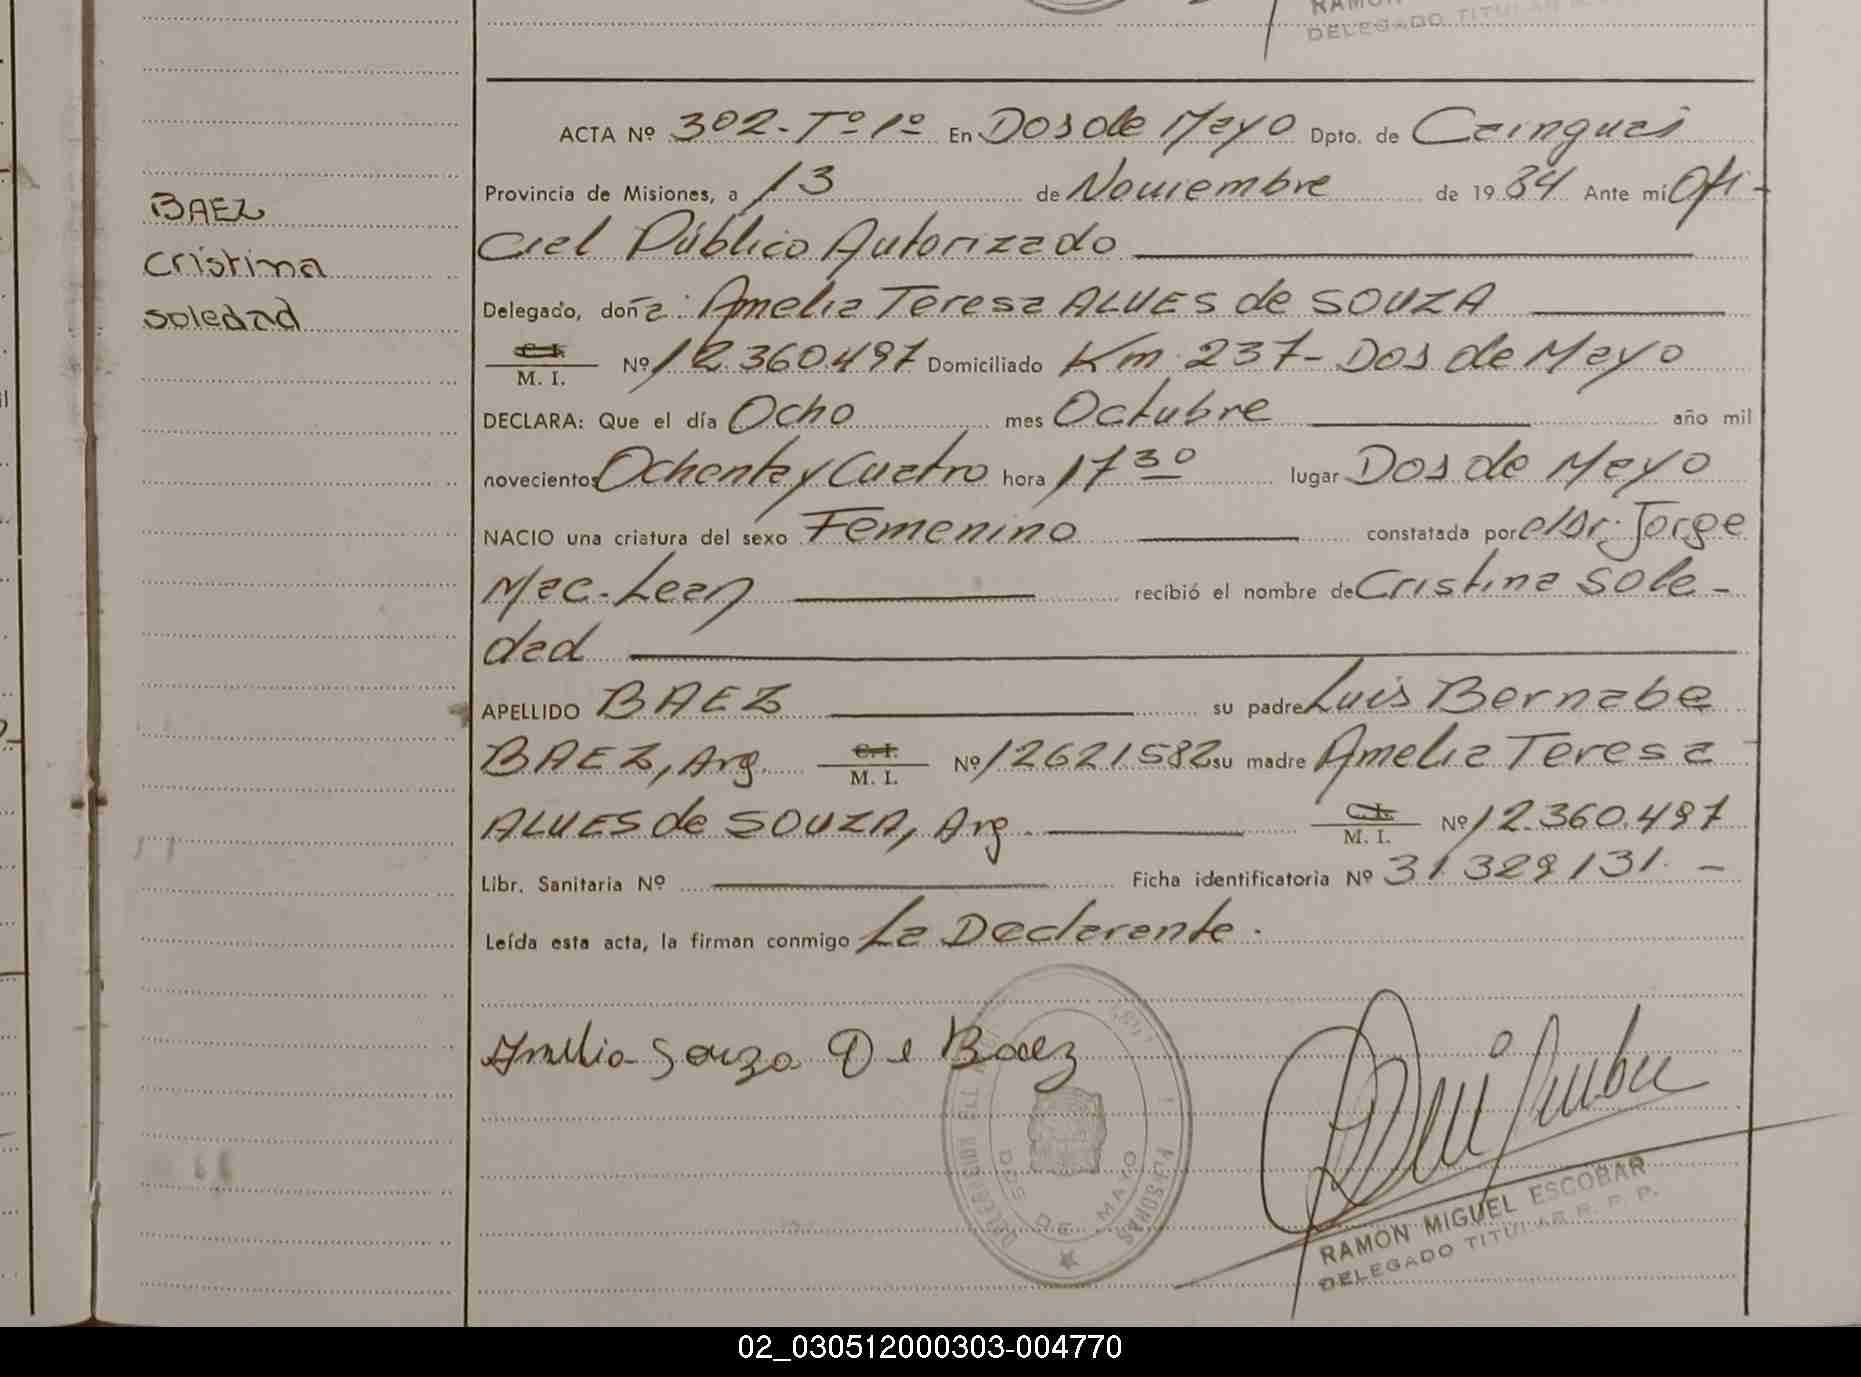 RAMON
DELEGADO TITULAR
BAEZ
Cristina
Soledad
ACTA Nº 302-Tº 1º En Dos de Mayo Dpto. de Cainguas
Provincia de Misiones, a 13 de Noviembre de 1984 Ante mí Ofi-
cial Público Autorizado
Delegado, doña: Amelia Teresa ALVES de SOUZA
C. I.
M. I. Nº 12.360.497 Domiciliado Km. 237- Dos de Mayo
DECLARA: Que el día Ocho mes Octubre año mil
novecientos Ochenta y Cuatro hora 17 30 lugar Dos de Mayo
NACIO una criatura del sexo Femenino constatada por el Dr. Jorge
Mac-Lean recibió el nombre de Cristina Sole-
dad
APELLIDO BAEZ su padre Luis Bernabe
BAEZ, Arg. C. I. M. I. Nº 12621582 su madre Amelia Teresa
ALVES de SOUZA, Arg. C. I. M. I. Nº 12.360.497
Libr. Sanitaria Nº Ficha identificatoria Nº 31.329.131.-
Leída esta acta, la firman conmigo La Declarante.
Amelia Souza De Baez
DOS DE MAYO
RAMON MIGUEL ESCOBAR
DELEGADO TITULAR R. P. P.
02_030512000303-004770